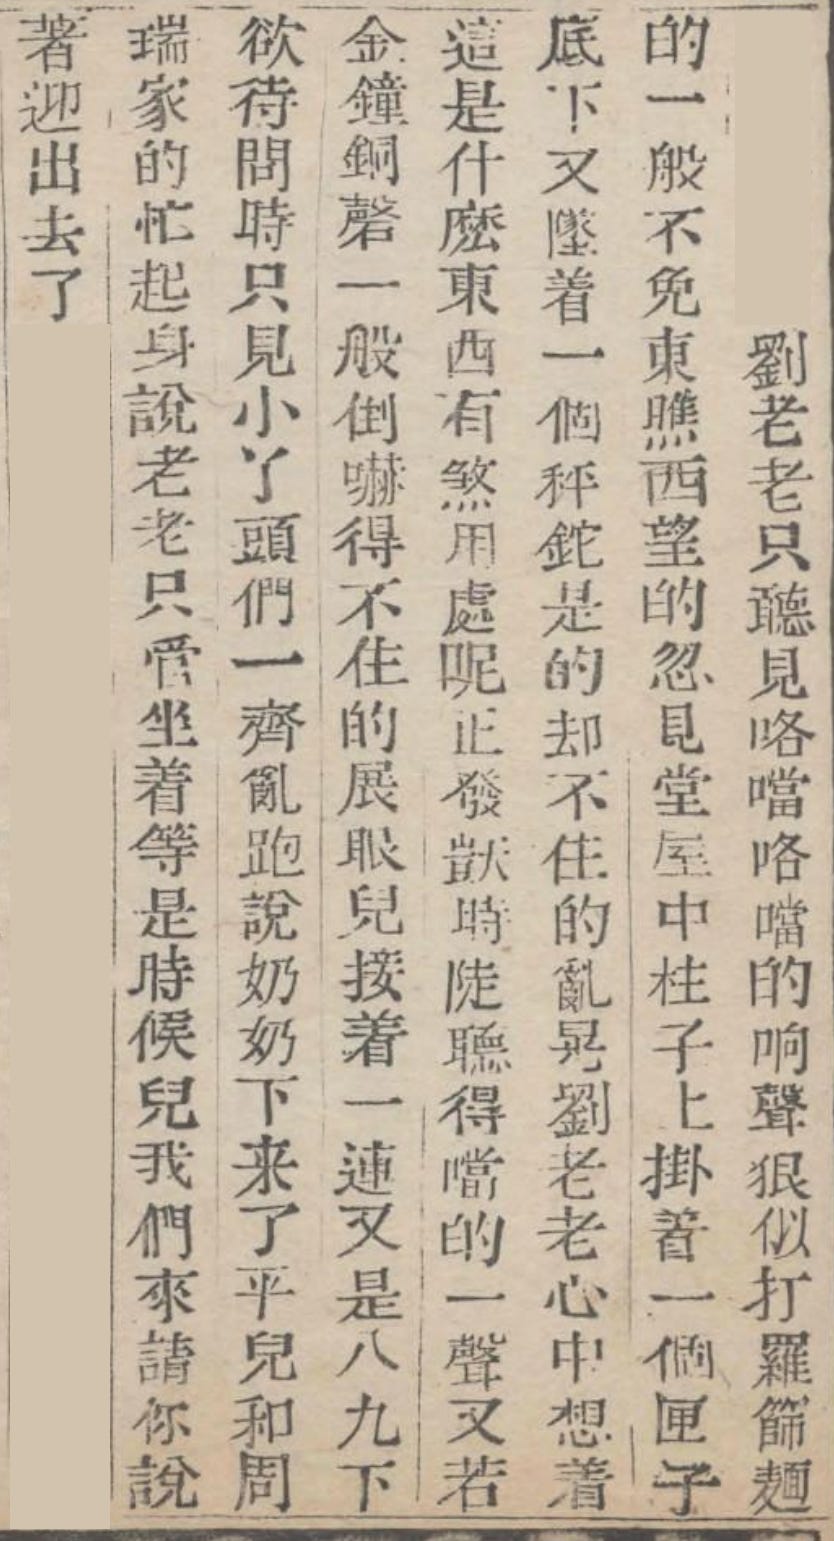 劉老老只聽見咯噹咯噹的响聲狠似打羅篩麺
的一般不免東瞧西望的忽見堂屋中柱子上掛着一個匣子
底下又墜着一個秤鉈是的却不住的亂晃劉老老心中想着
這是什麽東西有煞用處呢正發獃時陡聽得噹的一聲又若
金鐘銅磬一般倒嚇得不住的展眼兒接着一連又是八九下
欲待問時只見小丫頭們一齊亂跑說奶奶下来了平兒和周
瑞家的忙起身說老老只管坐着等是時候兒我們來請你說
著迎出去了